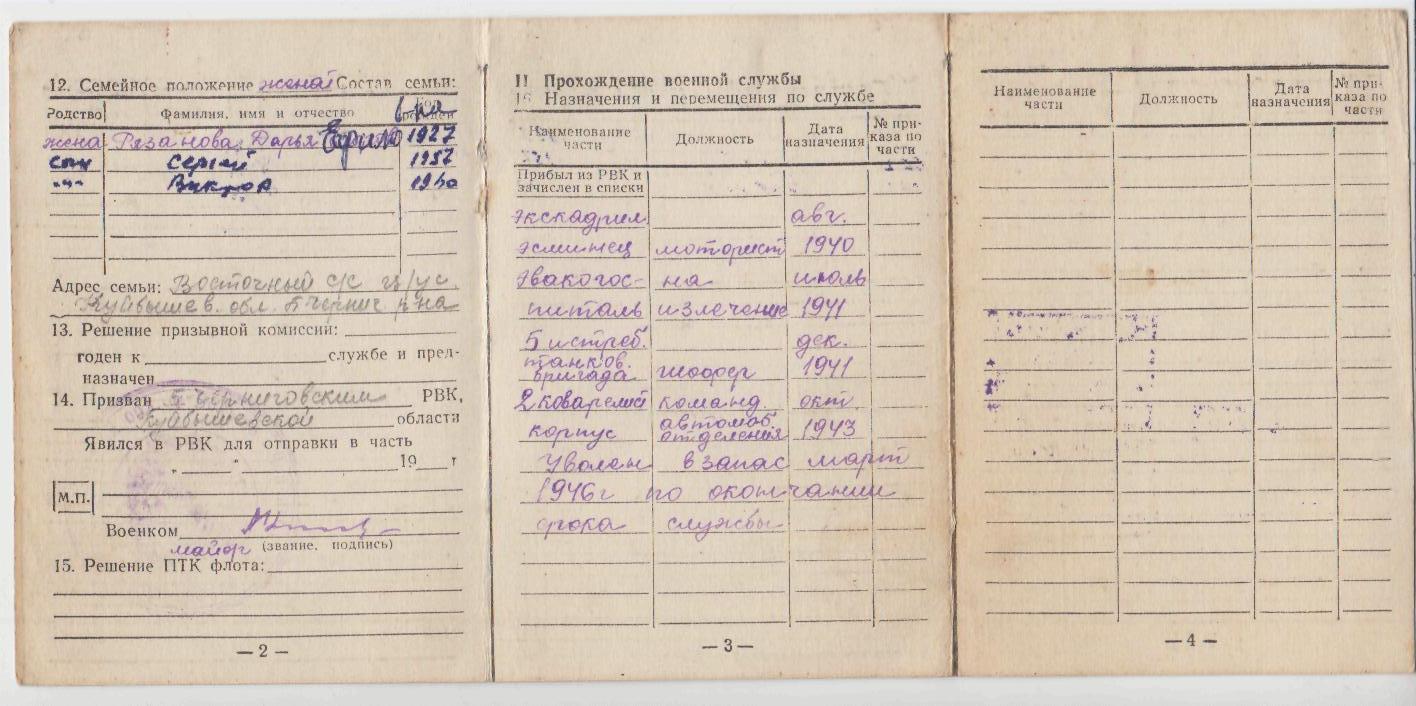 12. Семейное положение женат Состав семьи:
Родство Фамилия, имя и отчество
жена Рязанова Дарья 1927
сын Сергей 1957
-"- Виктор
Адрес семьи: Восточный с/с
Куйбышев. обл. Б Черниг р-на
13. Решение призывной комиссии:
годен к службе и пред-
назначен
14. Призван Б Черниговским РВК,
Куйбышевской области
Явился в РВК для отправки в часть
„ " 19 г
М.П.
Военком
майор (звание, подпись)
15. Решение ПТК флота:
— 2 —
II Прохождение военной службы
16. Назначения и перемещения по службе
Наименование части Должность Дата назначения № при-каза по части
Прибыл из РВК и
зачислен в списки
экскадрил. авг.
эсминец моторист 1940
эвакогос- на июль
питаль излечение 1941
5 истреб. дек.
танков.
бригада шофер 1941
2 команд. окт.
корпус автомоб. отделения 1943
Уволен в запас март
1946г по окончании
срока службы
— 3 —
Наименование части Должность Дата назначения № при-каза по части
— 4 —